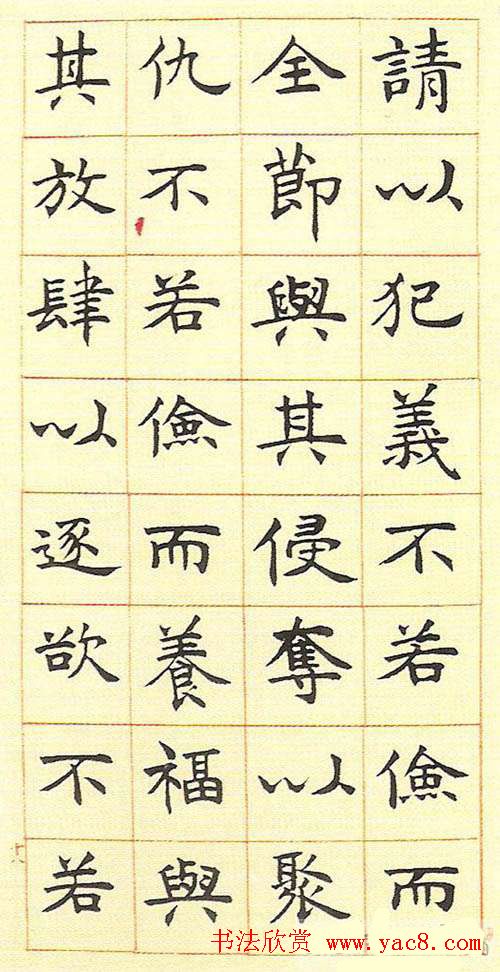 請以犯義不若儉而
全節與其侵奪以聚
仇不若儉而養福與
其放肆以逐欲不若
书法欣赏 www.yac8.com